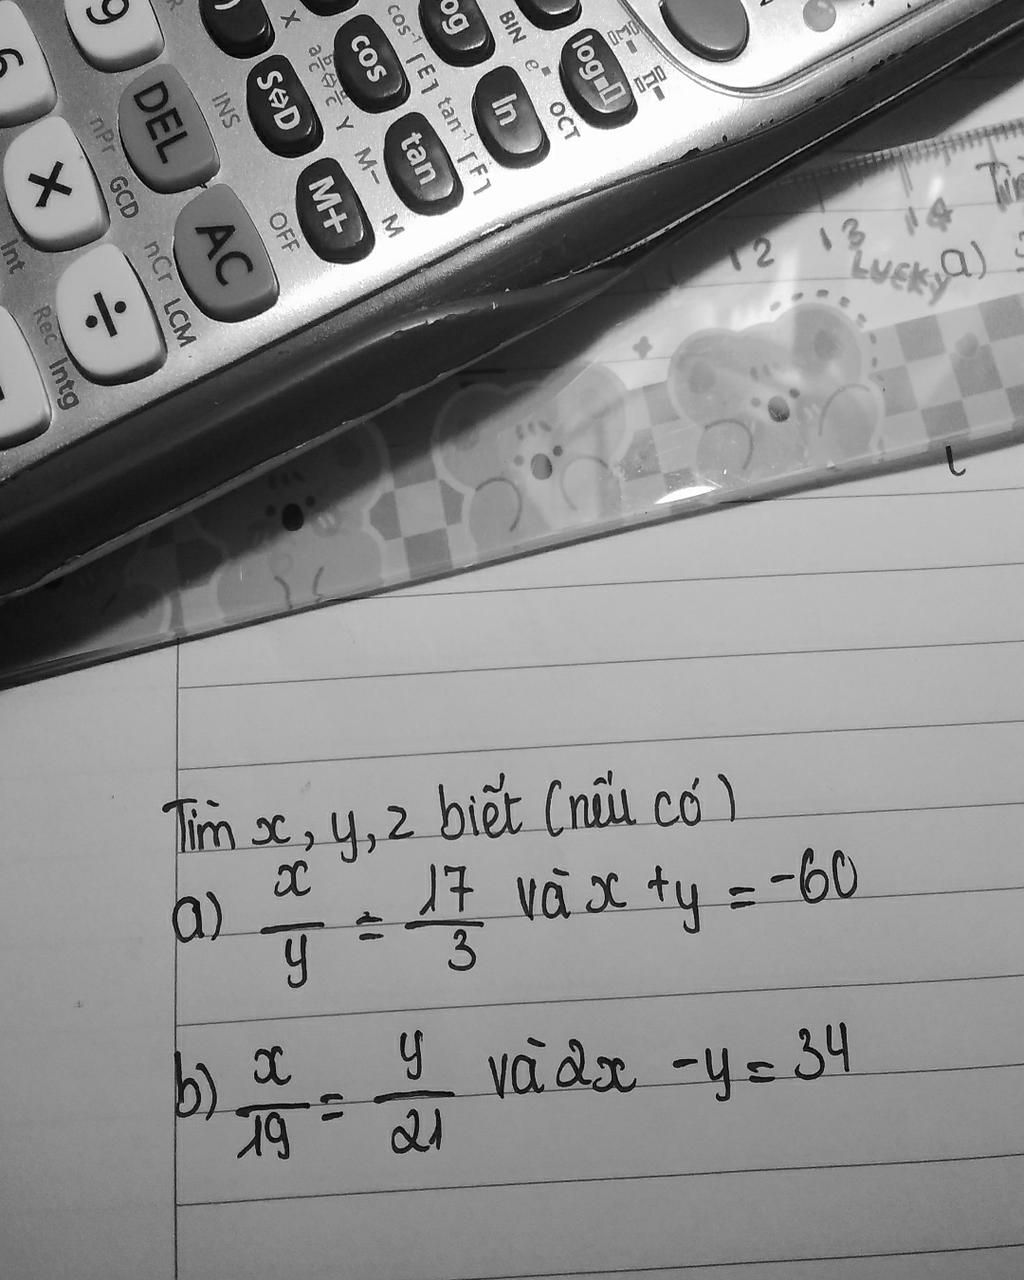 9
6
DEL
INS
nPr
GCD
×
AC
OFF
nCr
LCM
Int
÷
Rec
Intg
)
X
S⇔D
Y
M+
M-
M
cos
cos⁻¹
[E]
tan
tan⁻¹
[F]
og
BIN
ln
e■
OCT
log■□
12 13 14
LUCKY
a)
Tìm x, y, z biết (nếu có)
a) x/y = 17/3 và x + y = -60
b) x/19 = y/21 và 2x - y = 34